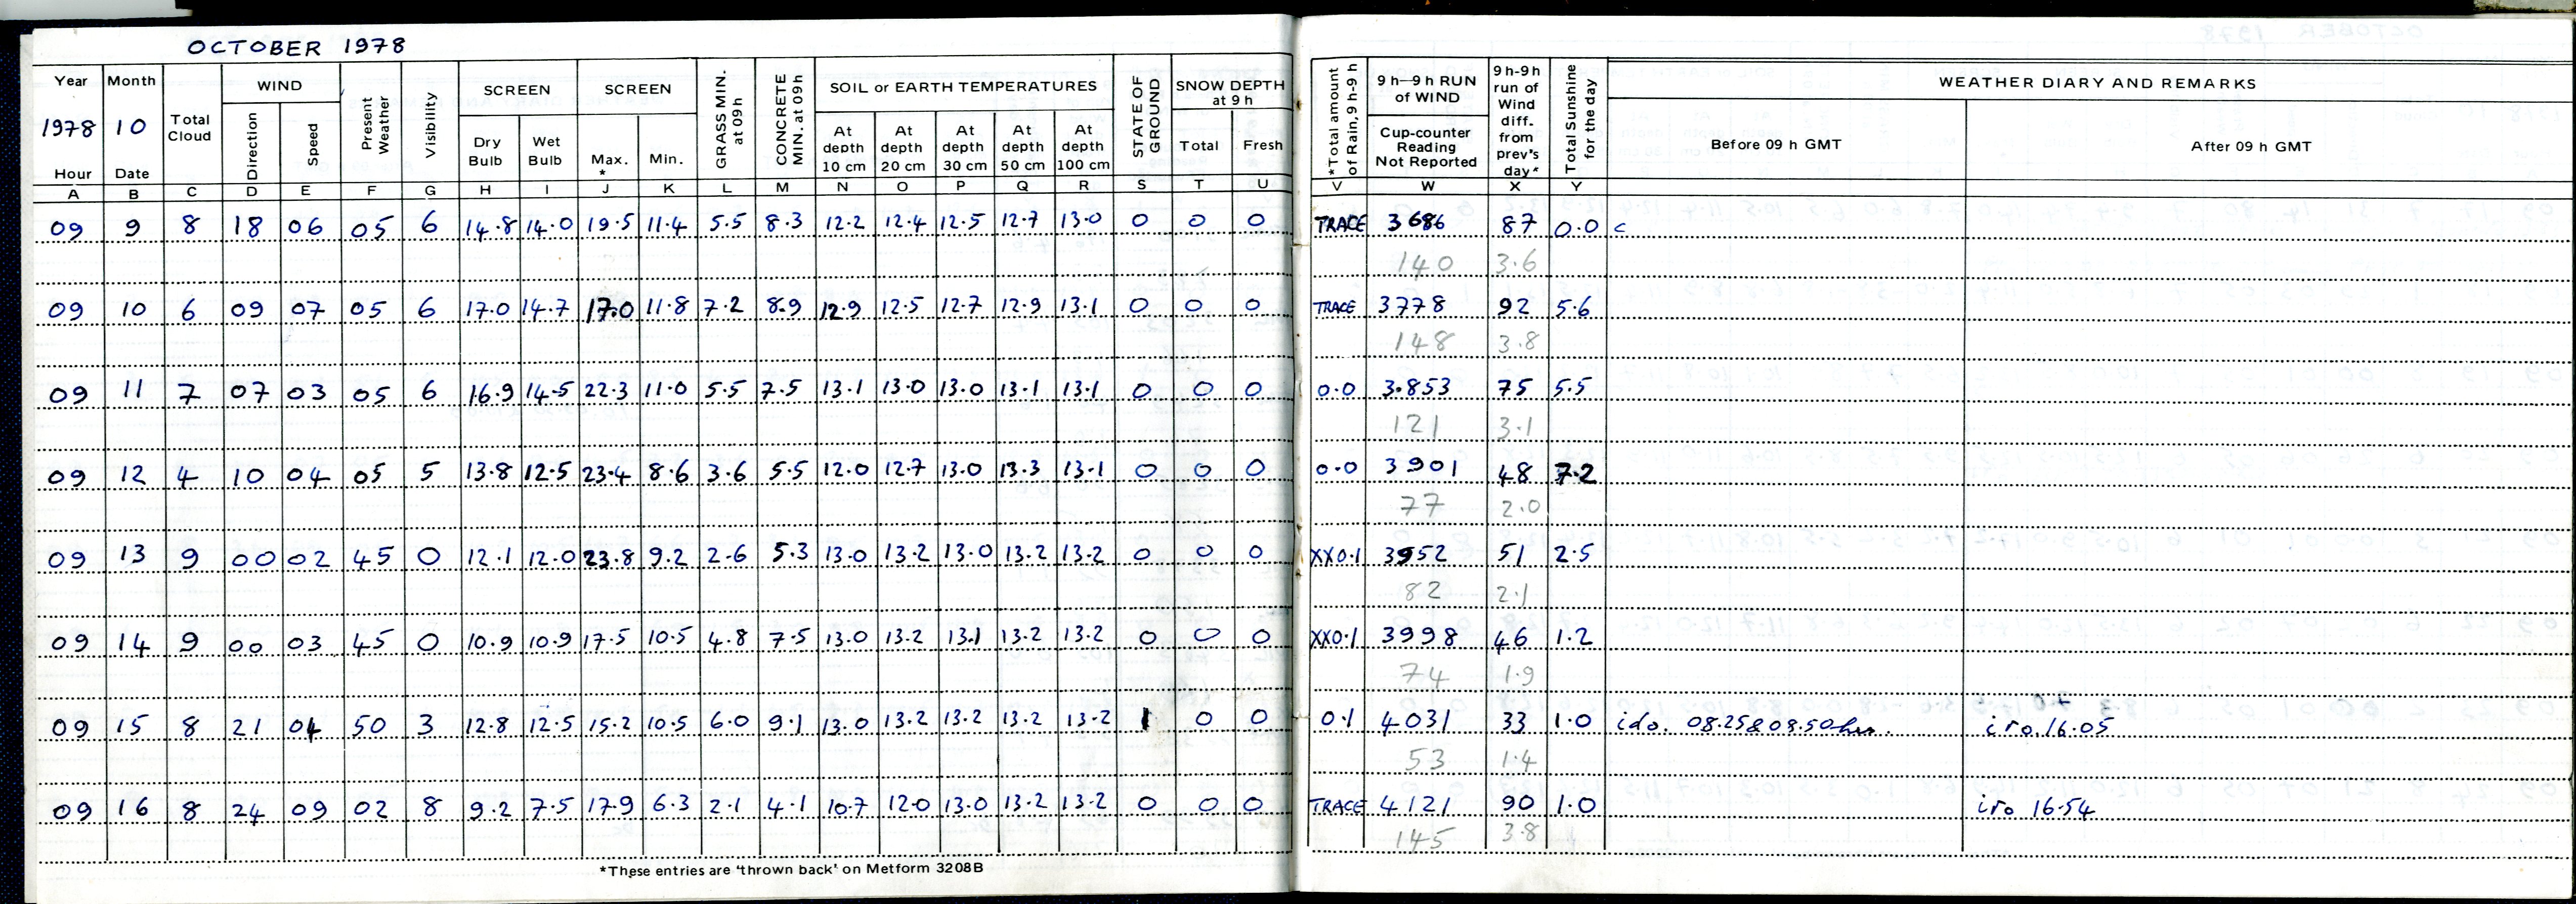 OCTOBER 1978
Year Month Total Cloud WIND Present Weather Visibility SCREEN SCREEN GRASS MIN. at 09 h CONCRETE MIN. at 09 h SOIL or EARTH TEMPERATURES STATE OF GROUND SNOW DEPTH at 9 h *Total amount of Rain, 9 h-9 h 9 h—9 h RUN of WIND 9 h-9 h run of Wind diff. from prev's day* Total Sunshine for the day WEATHER DIARY AND REMARKS
1978 10 Direction Speed Dry Bulb Wet Bulb Max. * Min. At depth 10 cm At depth 20 cm At depth 30 cm At depth 50 cm At depth 100 cm Total Fresh Cup-counter Reading Not Reported Before 09 h GMT After 09 h GMT
Hour Date
A B C D E F G H I J K L M N O P Q R S T U V W X Y
09 9 8 18 06 05 6 14.8 14.0 19.5 11.4 5.5 8.3 12.2 12.4 12.5 12.7 13.0 0 0 0 TRACE 3686 87 0.0 c
140 3.6
09 10 6 09 07 05 6 17.0 14.7 17.0 11.8 7.2 8.9 12.9 12.5 12.7 12.9 13.1 0 0 0 TRACE 3778 92 5.6
148 3.8
09 11 7 07 03 05 6 16.9 14.5 22.3 11.0 5.5 7.5 13.1 13.0 13.0 13.1 13.1 0 0 0 0.0 3.853 75 5.5
121 3.1
09 12 4 10 04 05 5 13.8 12.5 23.4 8.6 3.6 5.5 12.0 12.7 13.0 13.3 13.1 0 0 0 0.0 3901 48 7.2
77 2.0
09 13 9 00 02 45 0 12.1 12.0 23.8 9.2 2.6 5.3 13.0 13.2 13.0 13.2 13.2 0 0 0 XX0.1 3952 51 2.5
82 2.1
09 14 9 00 03 45 0 10.9 10.9 17.5 10.5 4.8 7.5 13.0 13.2 13.1 13.2 13.2 0 0 0 XX0.1 3998 46 1.2
74 1.9
09 15 8 21 04 50 3 12.8 12.5 15.2 10.5 6.0 9.1 13.0 13.2 13.2 13.2 13.2 1 0 0 0.1 4031 33 1.0 ido. 08.25 & 08.50 hrs. iro. 16.05
53 1.4
09 16 8 24 09 02 8 9.2 7.5 17.9 6.3 2.1 4.1 10.7 12.0 13.0 13.2 13.2 0 0 0 TRACE 4121 90 1.0 iro 16.54
145 3.8
*These entries are 'thrown back' on Metform 3208B